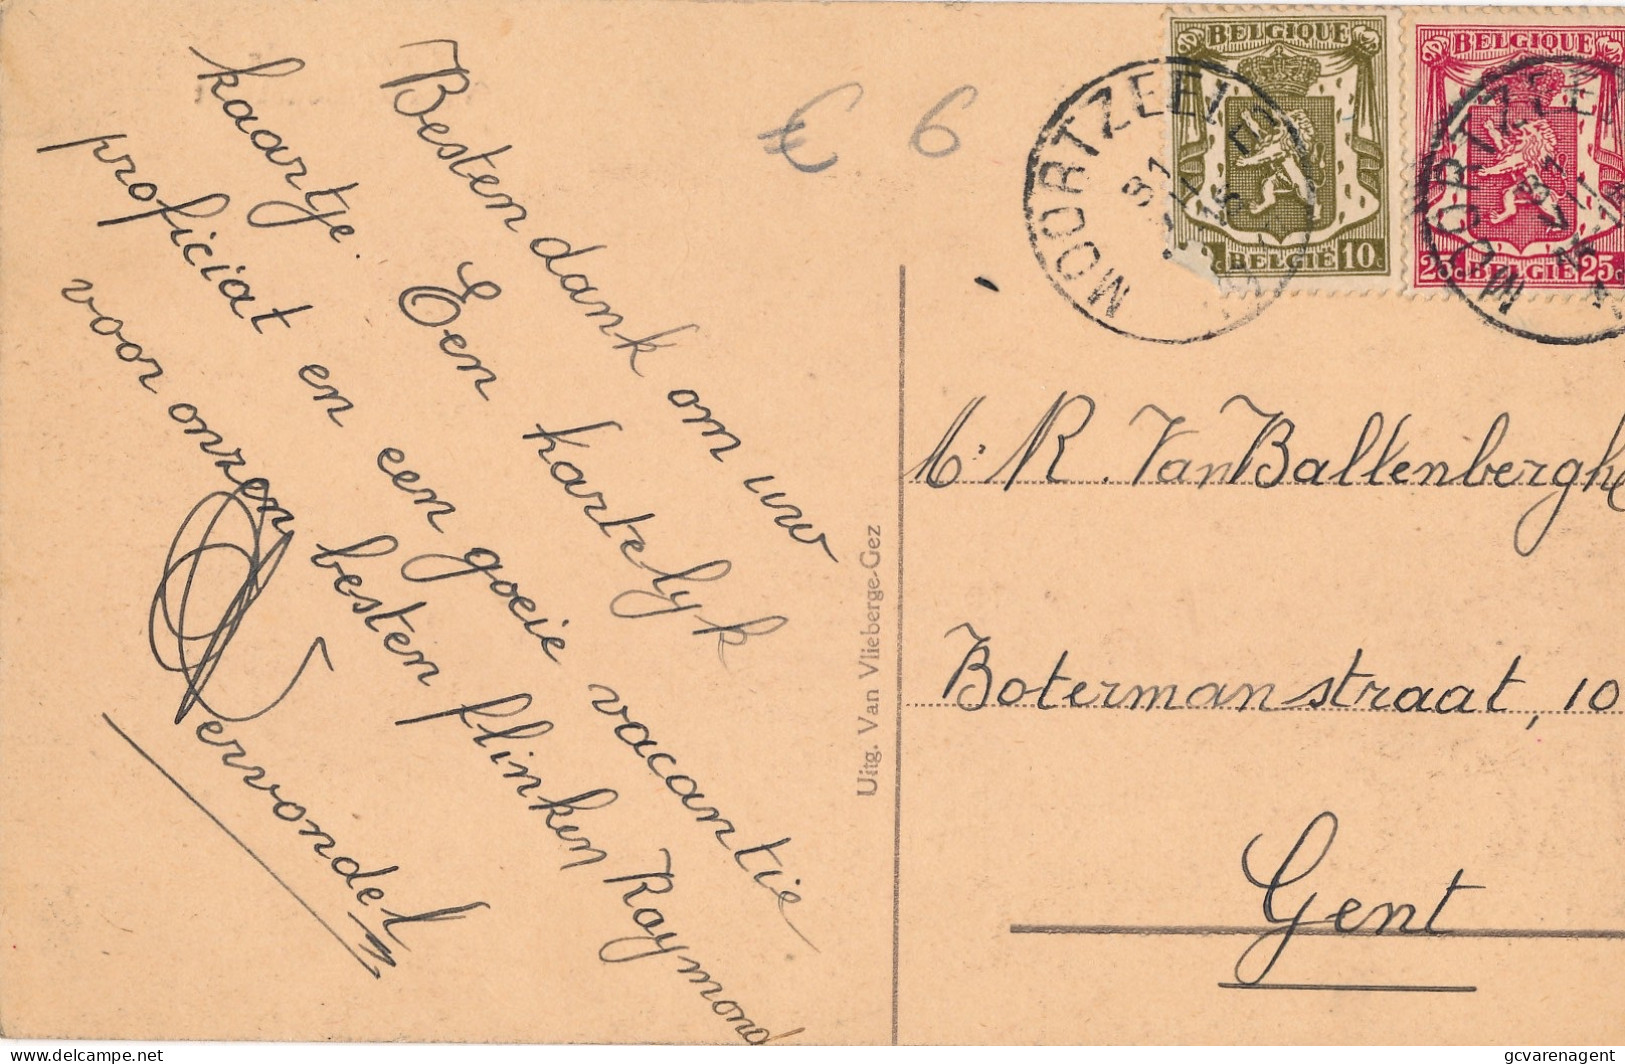 Besten dank om uw
kaartje. Een hartelyk
proficiat en een goeie vacantie
voor onzen besten flinken Raymond
Vervondel
Uitg. Van Vlieberge-Gez
€ 6
BELGIQUE
10c BELGIË 10c
BELGIQUE
25c BELGIË 25c
MOORTZEELE
MOORTZEELE
Mr R. Van Baltenberghe
Botermanstraat, 10
Gent
delcampe.net
gcvarenagent